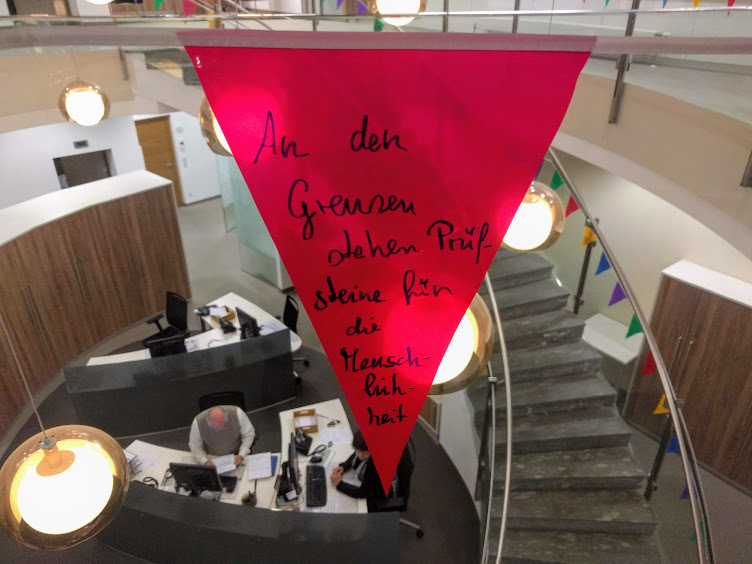 An den
Grenzen
stehen Prüf-
steine für
die
Mensch-
lich-
keit